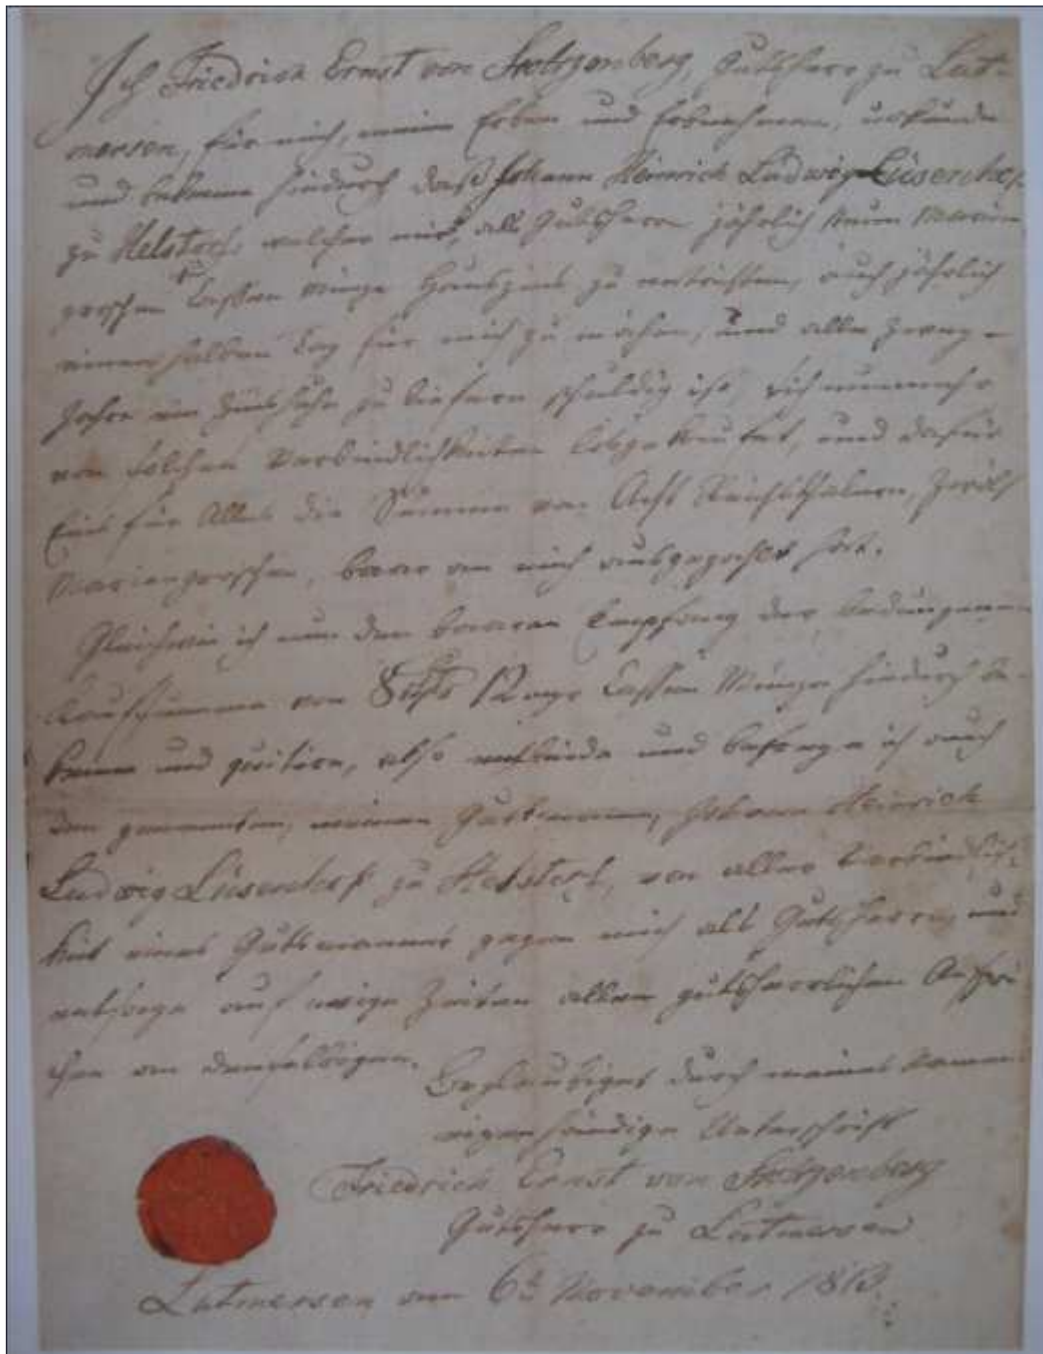 Ich Friedrich Ernst von Stolzenberg, Gutsherr zu Lut-
mersen, für mich, meine Erben und Erbnehmer, urkunde
und bekenne hiedurch daß Johann Heinrich Ludwig Lüsenhop
zu Helstorf, welcher mir, als Gutsherrn jährlich neun Marien
groschen Cassen Münze Hauszins zu entrichten, auch jährlich
einen halben Tag für mich zu mähen, und alle zwey
Jahre ein Zinshuhn zu liefern schuldig ist, sich nunmehr
von solchen Verbindlichkeiten losgekaufet, und dafür
Eins für Alles die Summe von Acht Reichsthalern, zwölf
Mariengroschen, baar an mich ausgezahlet hat.
Gleichwie ich nun den baaren Empfang der bedungenen
Kaufsumme von 8 12 Cassen Münze hiedurch be-
kenne und quitire, also entbinde und befreye ich auch
den genannten, meinen Gutsmann, Johann Heinrich
Ludwig Lüsenhop zu Helstorf, von aller Verbindlich-
keit eines Gutsmannes gegen mich als Gutsherrn, und
entsage auf ewige Zeiten allen gutsherrlichen Ansprü
chen an denselbigen.
Beglaubiget durch meines Namens
eigenhändige Unterschrift
Friedrich Ernst von Stolzenberg
Gutsherr zu Lutmersen
Lutmersen am 6 November 1813.